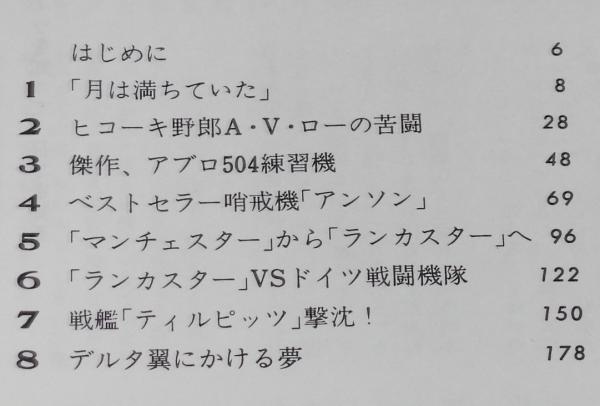 はじめに 6
1 「月は満ちていた」 8
2 ヒコーキ野郎A・V・ローの苦闘 28
3 傑作、アブロ504練習機 48
4 ベストセラー哨戒機「アンソン」 69
5 「マンチェスター」から「ランカスター」へ 96
6 「ランカスター」VSドイツ戦闘機隊 122
7 戦艦「ティルピッツ」撃沈！ 150
8 デルタ翼にかける夢 178